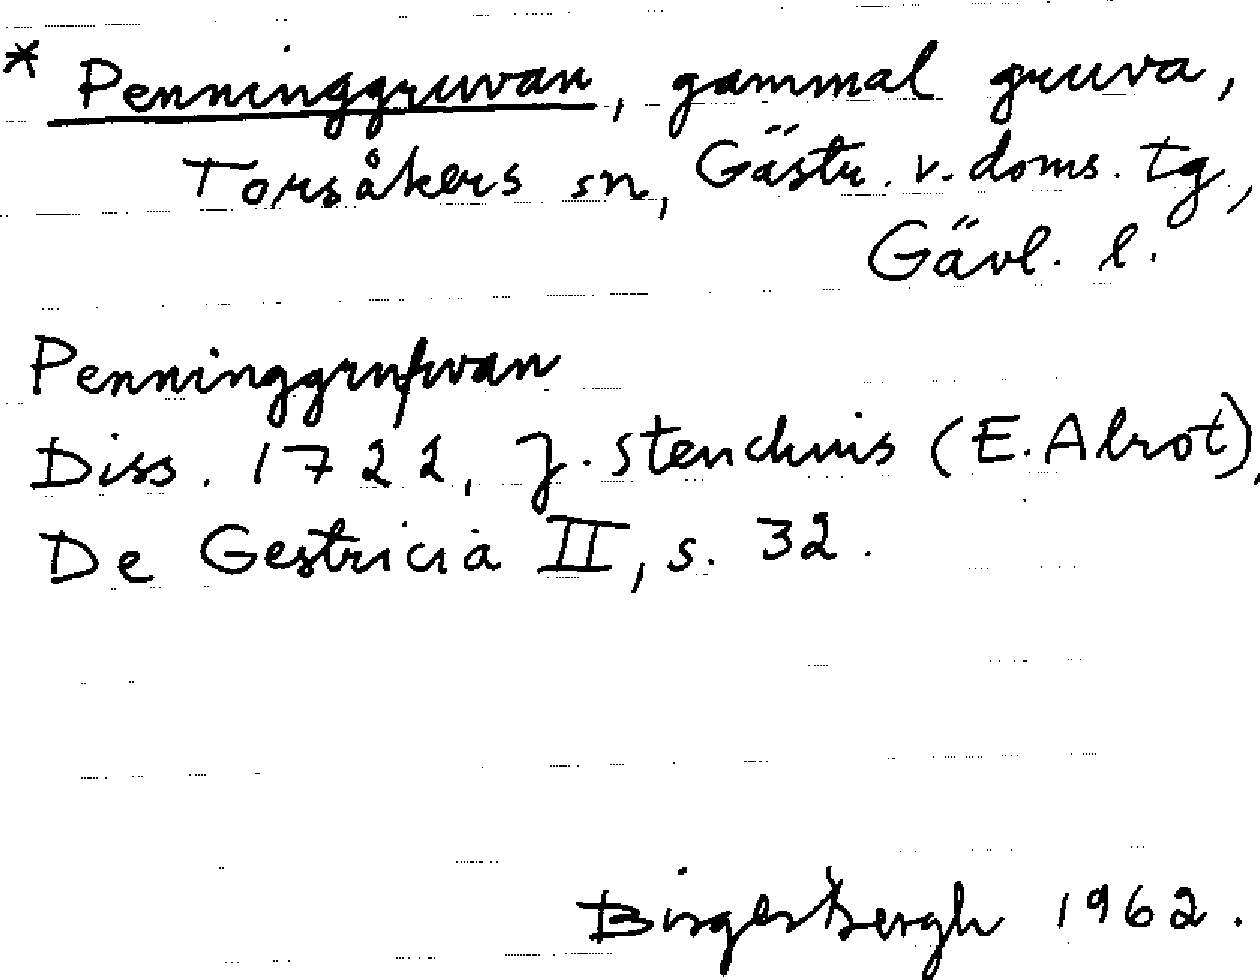 * Penninggruvan, gammal gruva,
Torsåkers sn, Gästr. v. doms. tg,
Gävl. l.
Penninggrufwan
Diss. 1722, J. Stenchius (E. Alrot),
De Gestricia II, s. 32.
Birger Bergh 1962.